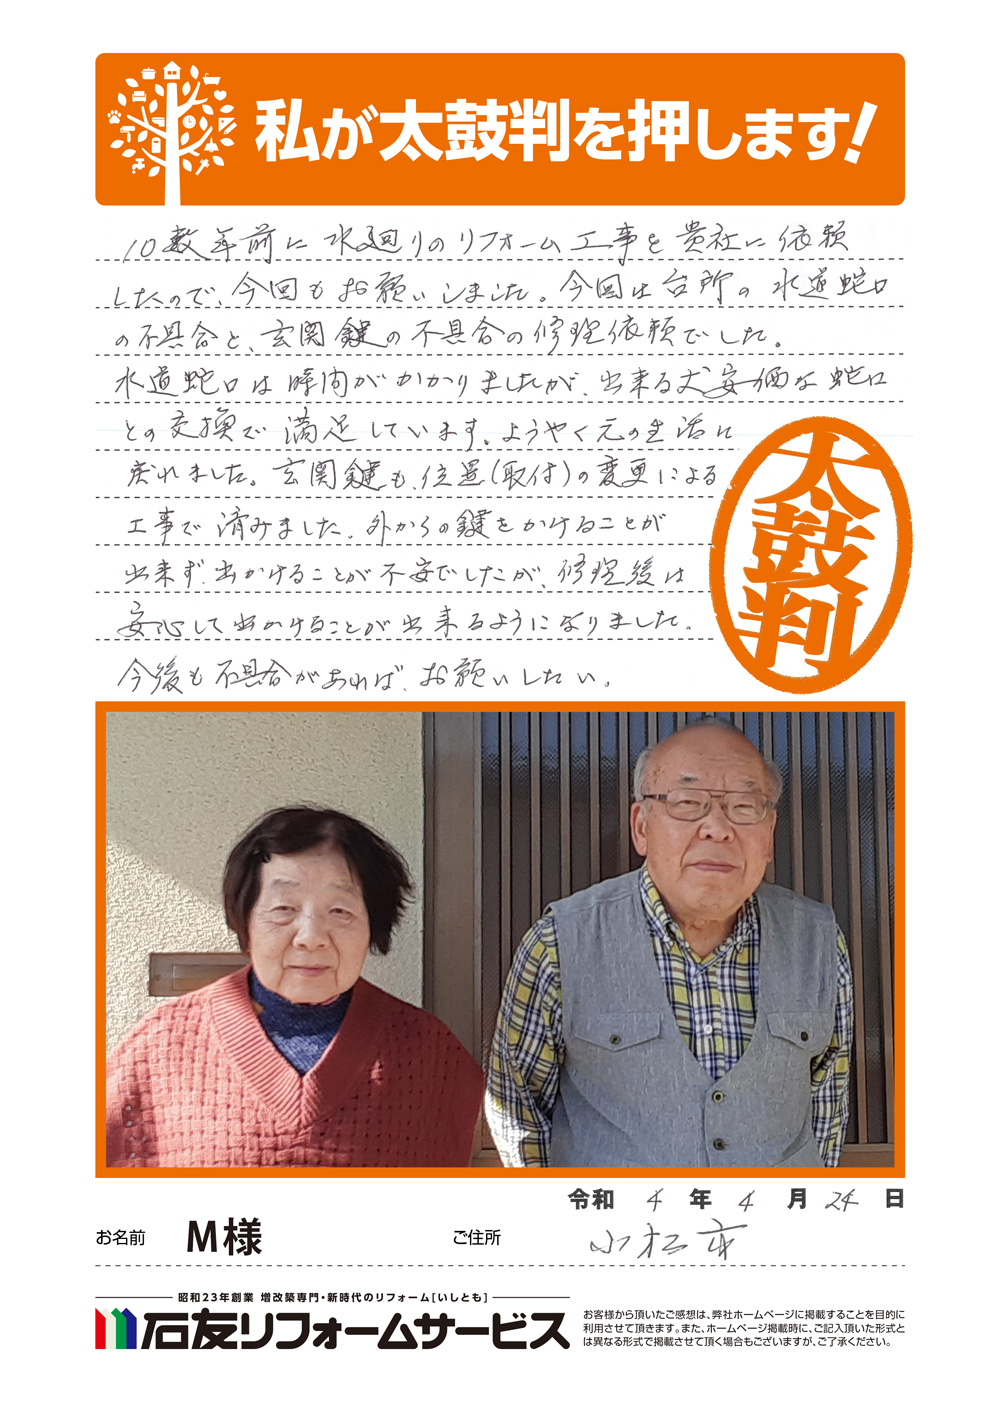 私が太鼓判を押します!
10数年前に水廻りのリフォーム工事を貴社に依頼
したので、今回もお願いしました。今回は台所の水道蛇口
の不具合と、玄関鍵の不具合の修理依頼でした。
水道蛇口は時間がかかりましたが、出来る丈安価な蛇口
との交換で満足しています。ようやく元の生活に
戻れました。玄関鍵も、位置(取付)の変更による
工事で済みました。外からの鍵をかけることが
出来ず、出かけることが不安でしたが、修理後は
安心して出かけることが出来るようになりました。
今後も不具合があれば、お願いしたい。
太鼓判
令和 4 年 4 月 24 日
お名前 M様 ご住所 小松市
昭和23年創業 増改築専門・新時代のリフォーム[いしとも]
石友リフォームサービス
お客様から頂いたご感想は、弊社ホームページに掲載することを目的に
利用させて頂きます。また、ホームページ掲載時に、ご記入頂いた形式と
は異なる形式で掲載させて頂く場合もございますが、ご了承ください。